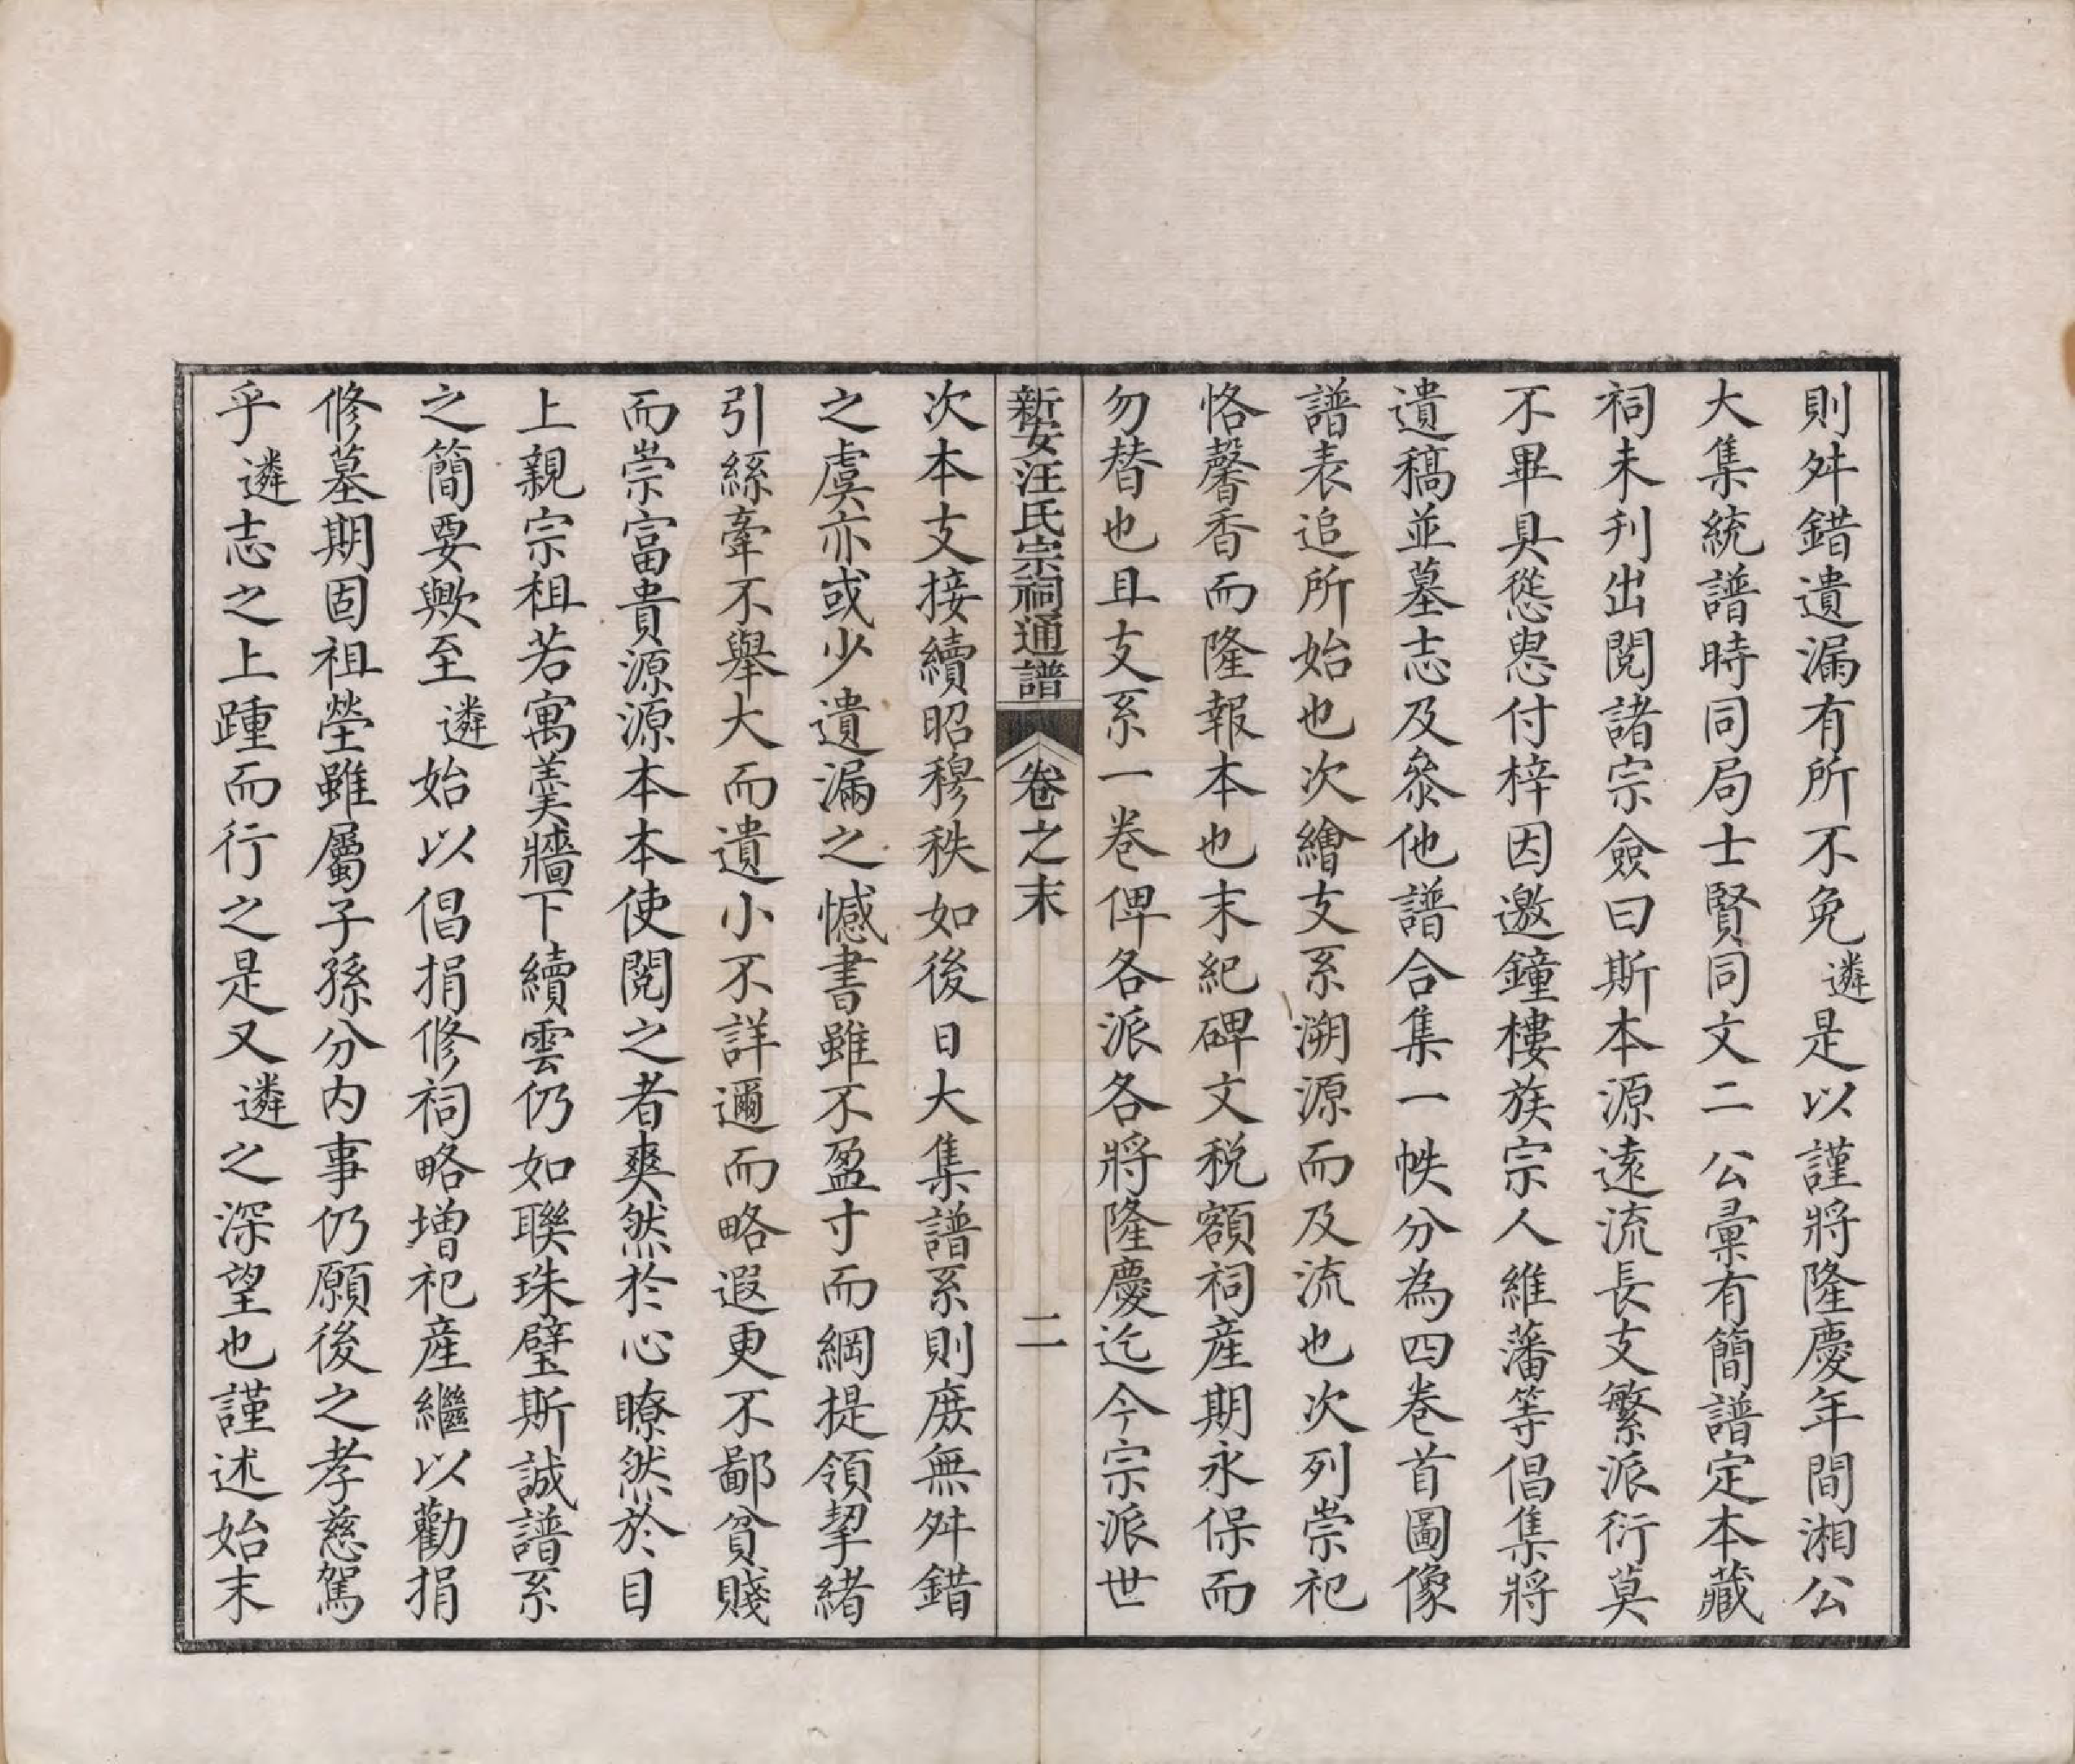 則舛錯遺漏有所不免遴是以謹將隆慶年間湘公
大集統譜時同局士賢同文二公彚有簡譜定本藏
祠未刋出閱諸宗僉曰斯本源遠流長支繁派衍莫
不畢具慫恿付梓因邀鐘樓族宗人維藩等倡集將
遺稿並墓志及叅他譜合集一帙分為四卷首圖像
譜表追所始也次繪支系溯源而及流也次列崇祀
恪馨香而隆報本也末紀碑文税額祠產期永保而
勿替也且支系一卷俾各派各將隆慶迄今宗派世
新安汪氏宗祠通譜 卷之末 二
次本支接續昭穆秩如後日大集譜系則庻無舛錯
之虞亦或少遺漏之憾書雖不盈寸而綱提領挈緒
引絲牽不舉大而遺小不詳邇而略遐更不鄙貧賤
而崇富貴源源本本使閱之者爽然於心瞭然於目
上親宗祖若寓羹牆下續雲仍如聯珠璧斯誠譜系
之簡要歟至遴始以倡捐修祠略增祀產繼以勸捐
修墓期固祖塋雖屬子孫分内事仍願後之孝慈駕
乎遴志之上踵而行之是又遴之深望也謹述始末